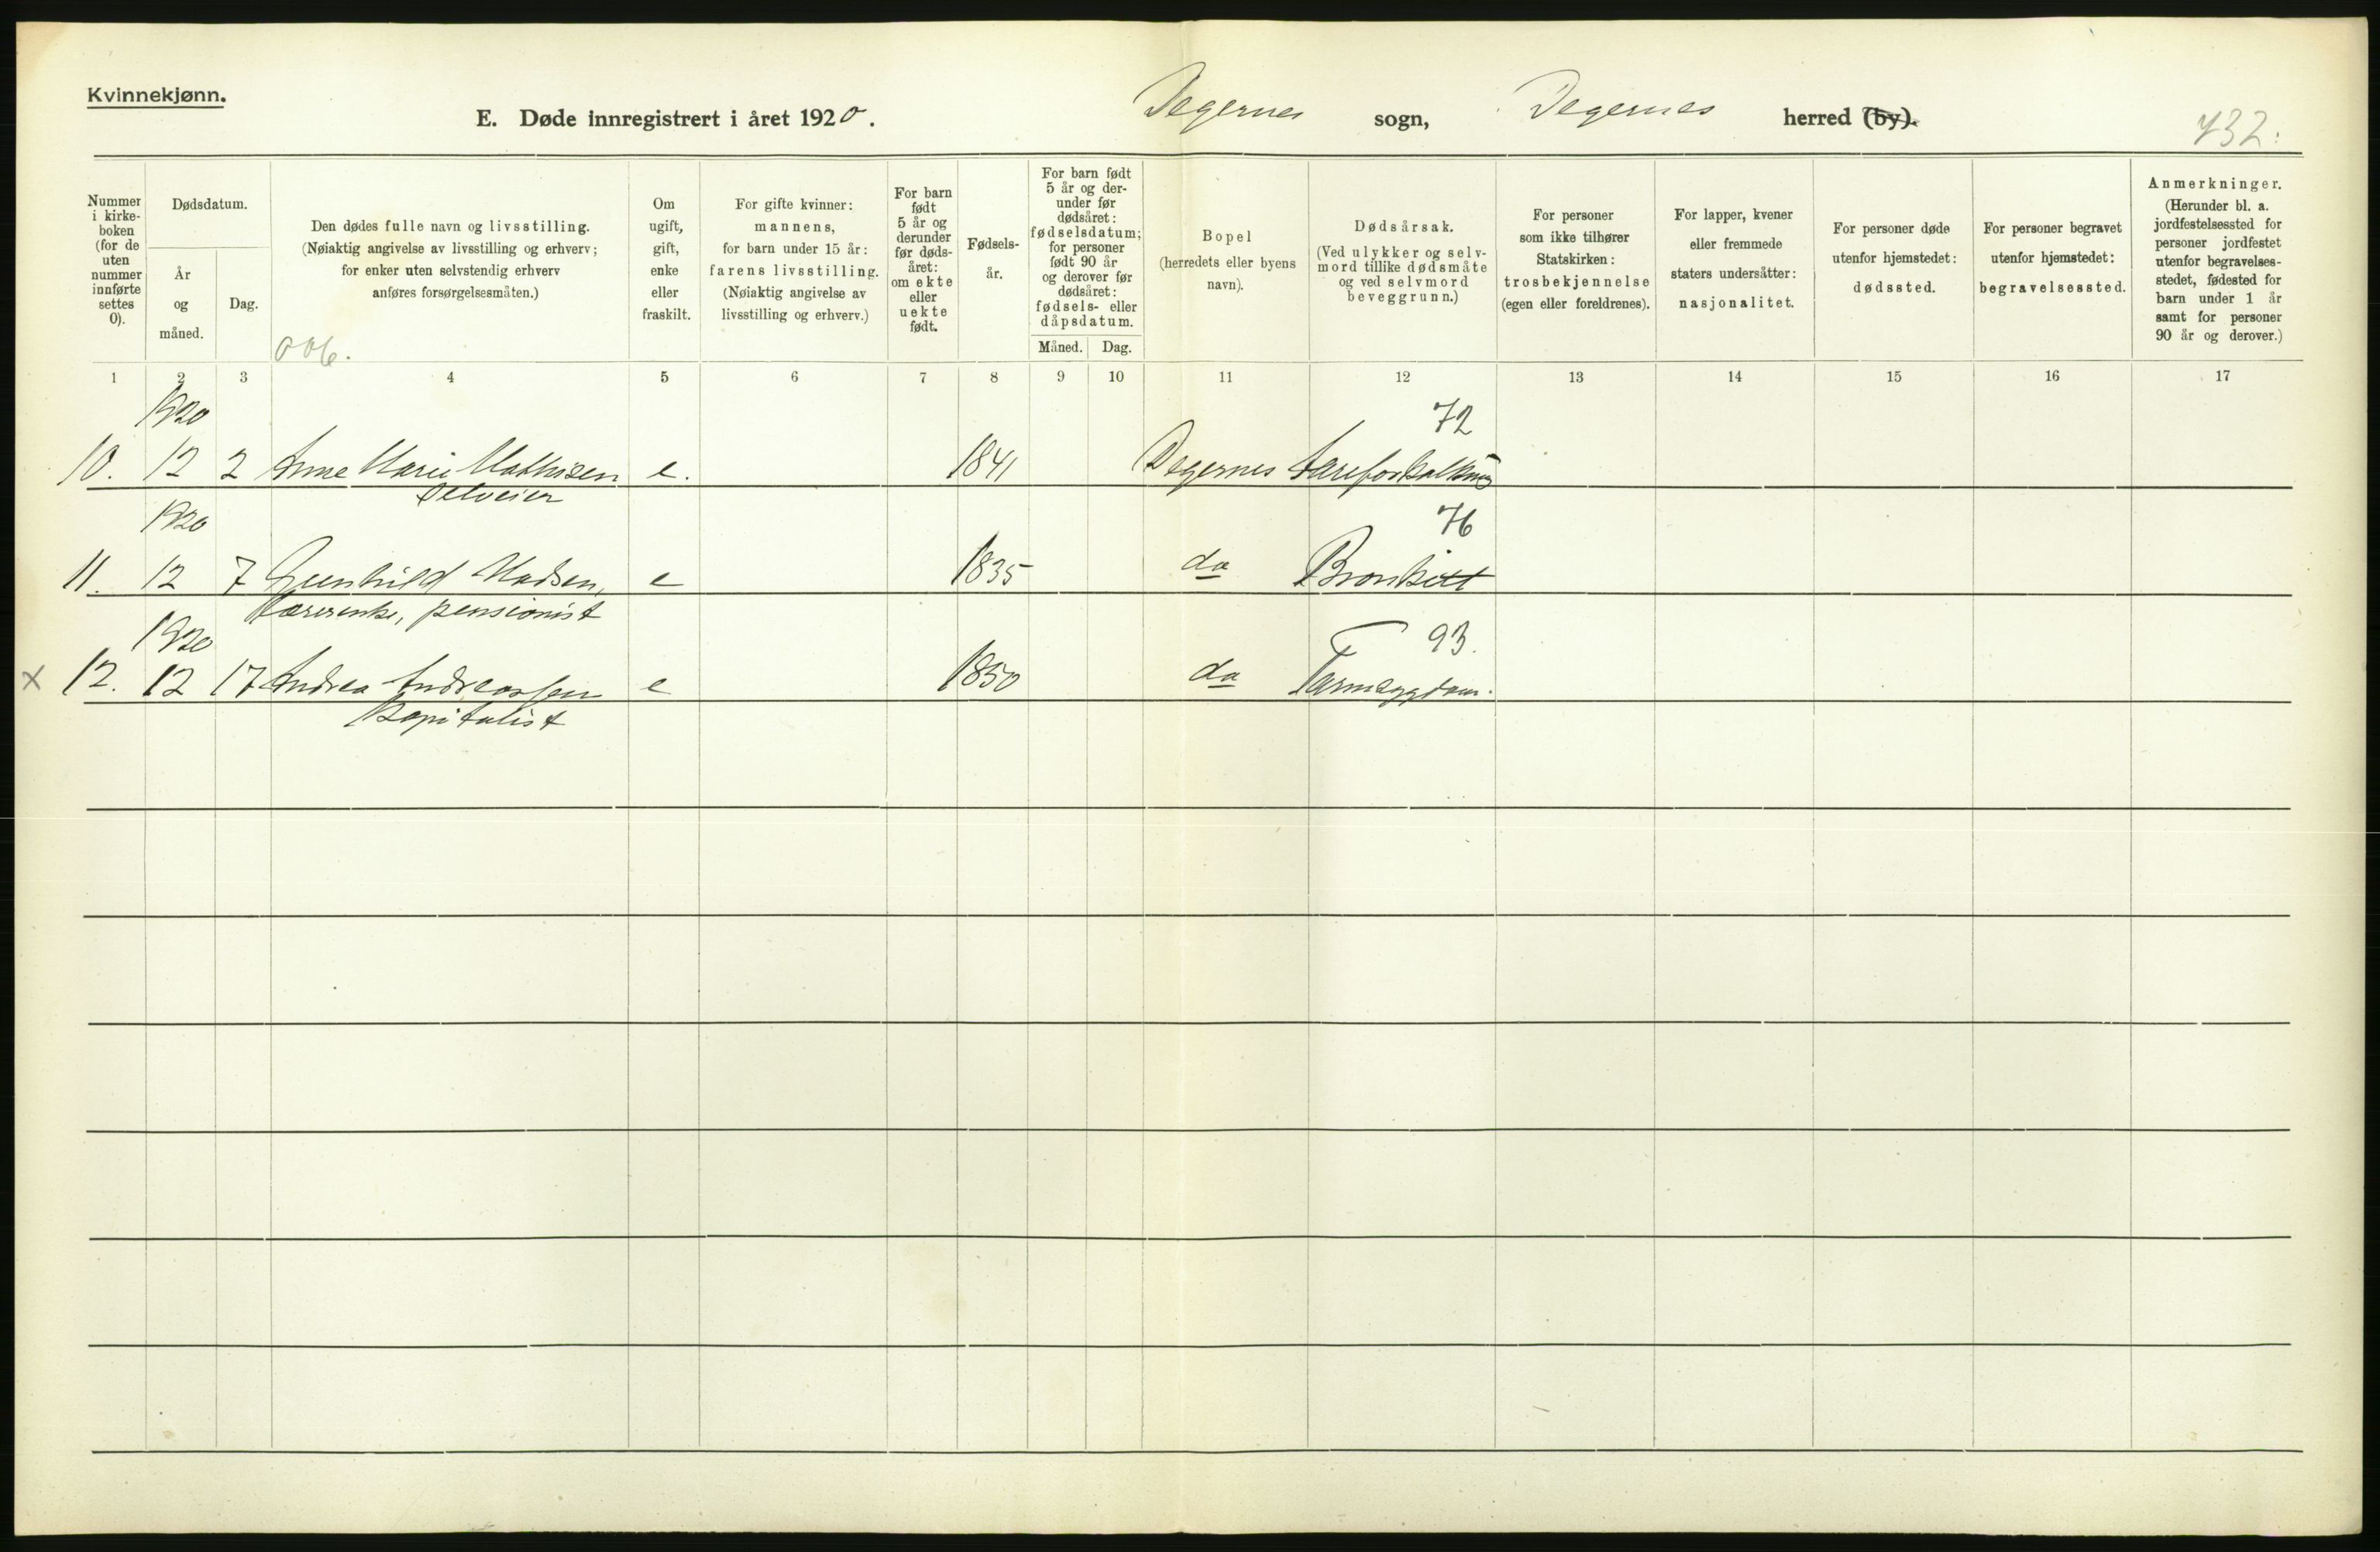 Kvinnekjønn.
E. Døde innregistrert i året 1920.
Degernes sogn, Degernes herred (by).
732.
Nummer i kirke-boken (for de uten nummer innførte settes 0).
Dødsdatum.
År og måned.
Dag.
Den dødes fulle navn og livsstilling.
(Nøiaktig angivelse av livsstilling og erhverv;
for enker uten selvstendig erhverv
anføres forsørgelsesmåten.)
006.
Om ugift, gift, enke eller fraskilt.
For gifte kvinner:
mannens,
for barn under 15 år:
farens livsstilling.
(Nøiaktig angivelse av
livsstilling og erhverv.)
For barn født 5 år og derunder før døds-året: om ekte eller uekte født.
Fødsels-år.
For barn født 5 år og der-under før dødsåret: fødselsdatum; for personer født 90 år og derover før dødsåret: fødsels- eller dåpsdatum.
Måned. Dag.
Bopel
(herredets eller byens
navn).
Dødsårsak.
(Ved ulykker og selv-
mord tillike dødsmåte
og ved selvmord
beveggrunn.)
For personer
som ikke tilhører
Statskirken:
trosbekjennelse
(egen eller foreldrenes).
For lapper, kvener
eller fremmede
staters undersåtter:
nasjonalitet.
For personer døde
utenfor hjemstedet:
dødssted.
For personer begravet
utenfor hjemstedet:
begravelsessted.
Anmerkninger.
(Herunder bl. a.
jordfestelsessted for
personer jordfestet
utenfor begravelses-
stedet, fødested for
barn under 1 år
samt for personer
90 år og derover.)
1 2 3 4 5 6 7 8 9 10 11 12 13 14 15 16 17
1920 72
10. 12 2 Anne Marie Mathisen e. 1841 Degernes Åreforkalkning
Selveier
1920 76
11. 12 7 Gunhild Madsen, e 1835 do Bronkitt
Lærerenke, pensionist
1920 93.
x 12. 12 17 Andrea Andreassen e 1850 do
Kapitalist